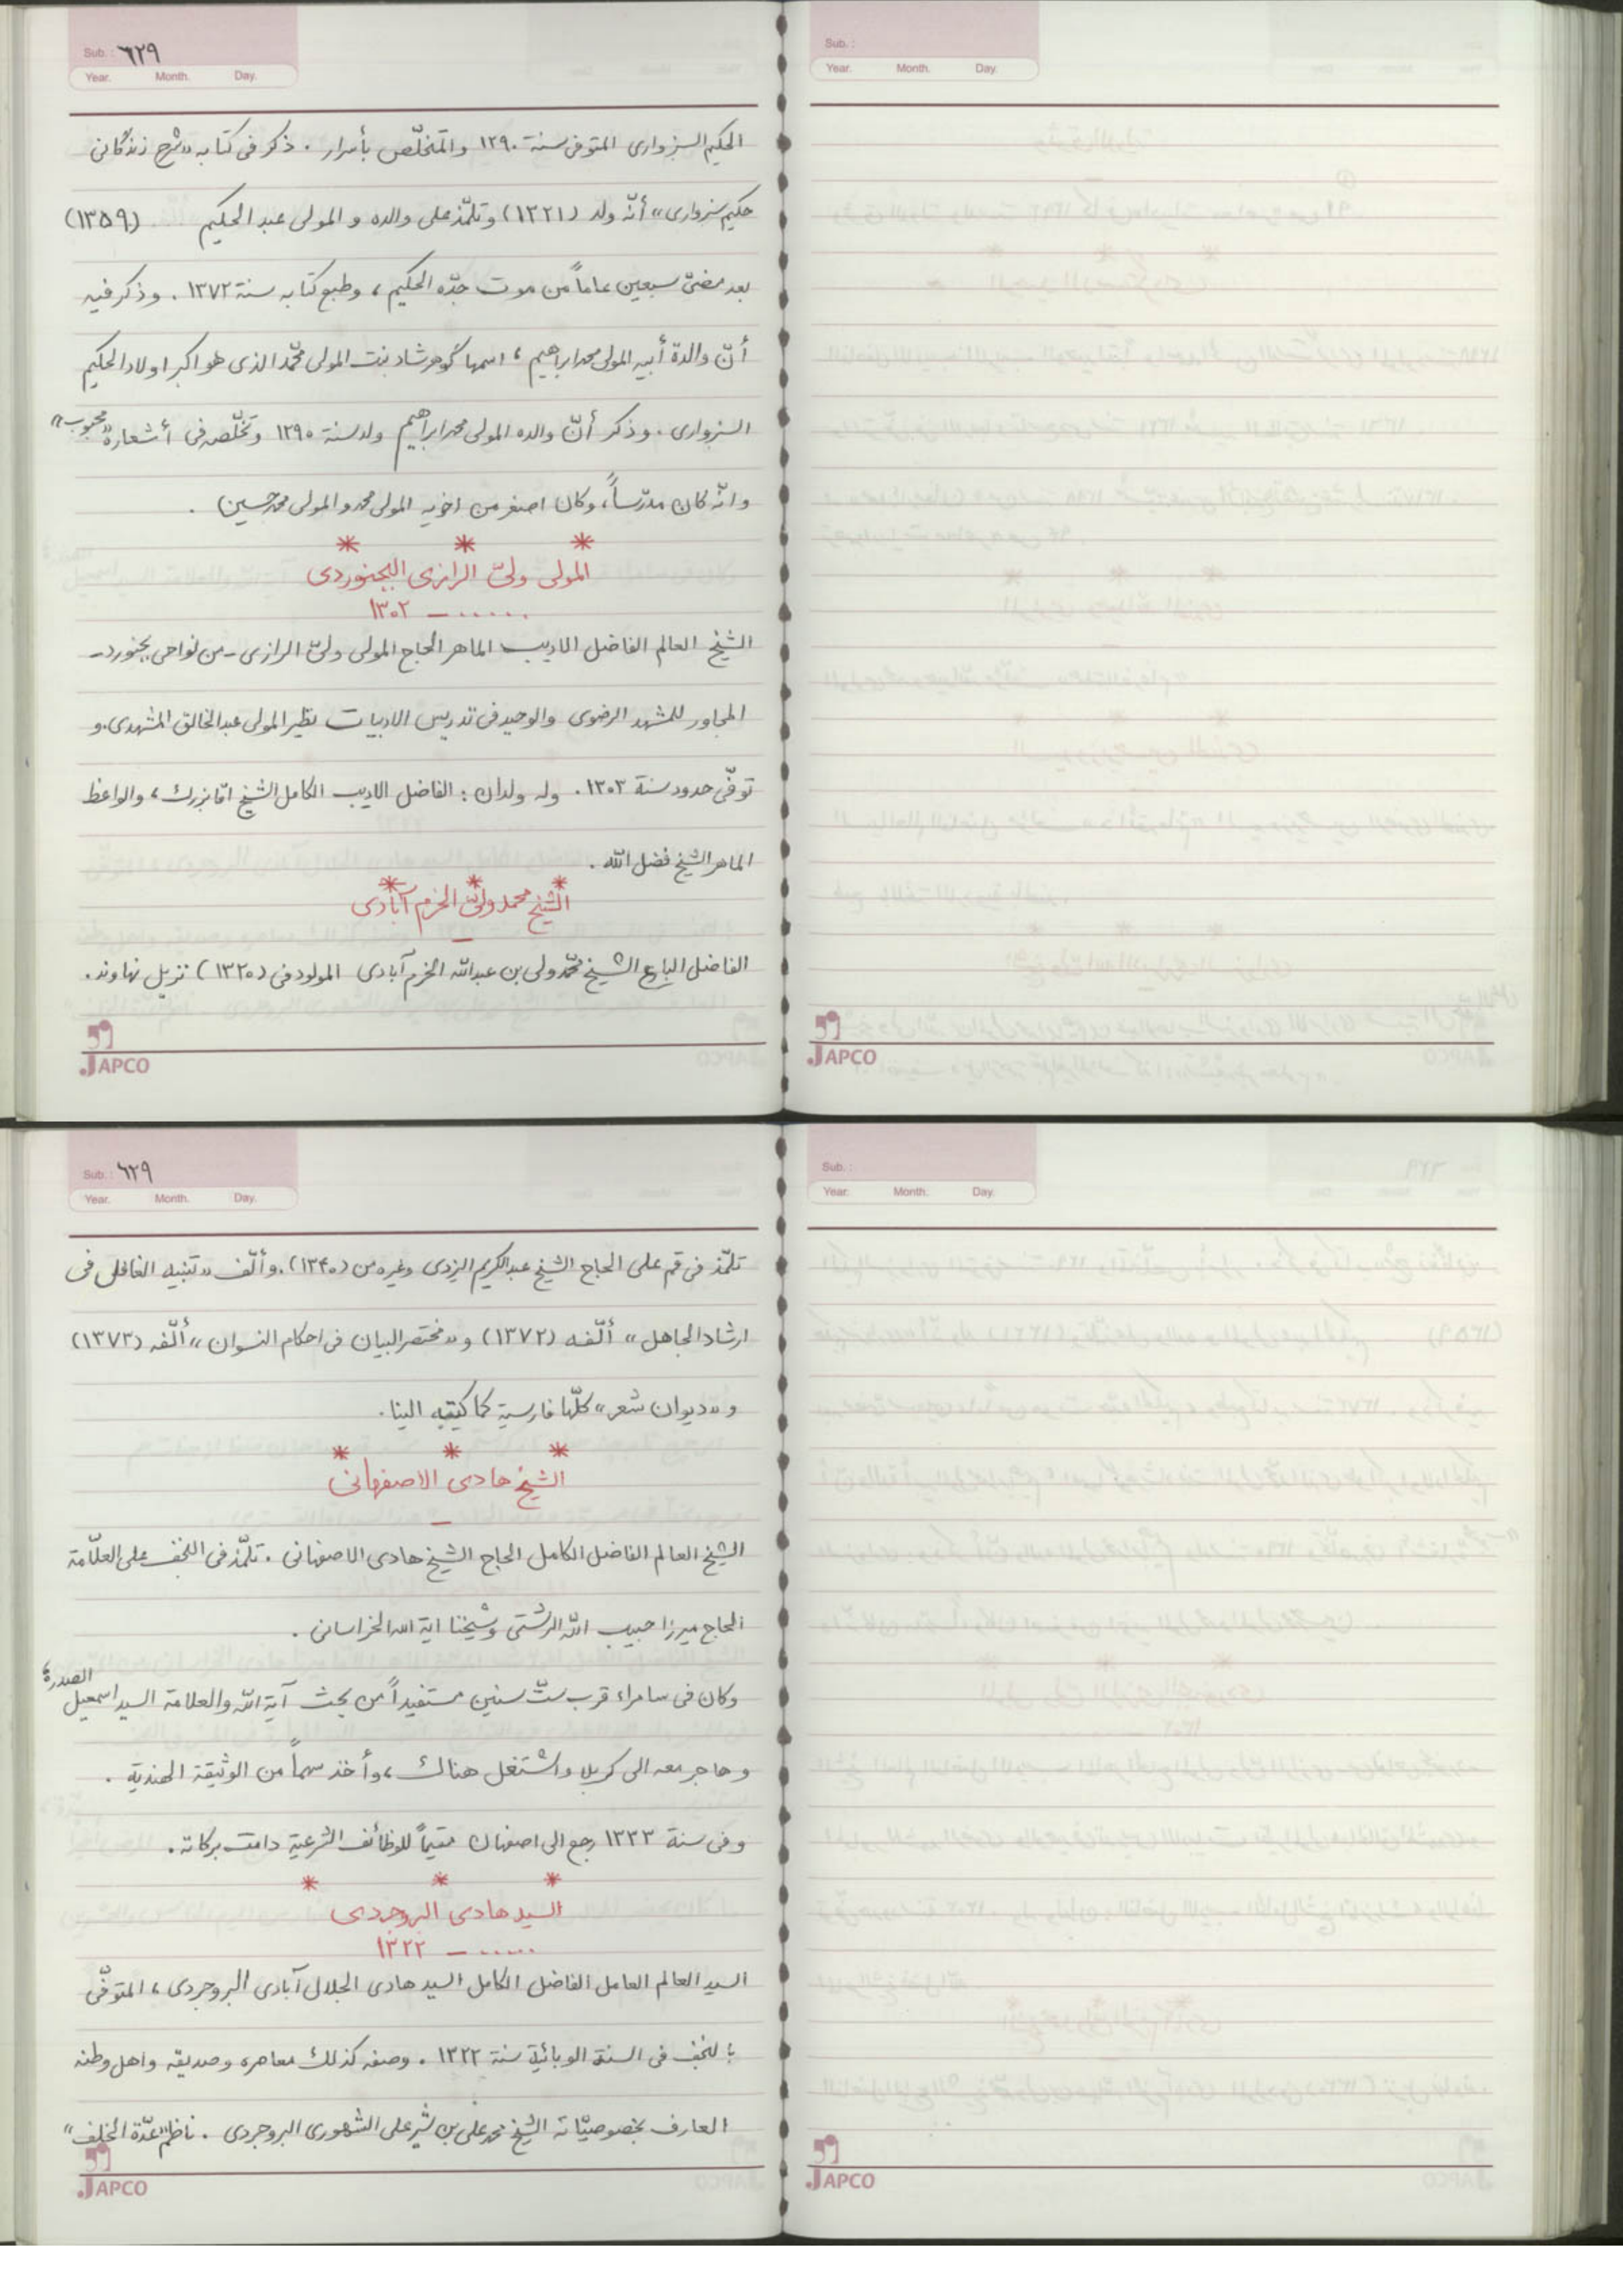 Sub. : ٦٢٩
Year. Month. Day.
الحكيم السبزوارى المتوفى سنة ١٢٩٠ والمتخلّص بأسرار . ذكر فى كتابه «شرح زندگانى
حكيم سبزوارى» أنّه ولد (١٣٢١) وتلمّذ على والده و المولى عبد الحكيم .... (١٣٥٩)
بعد مضىّ سبعين عاماً من موت جدّه الحكيم ، وطبع كتابه سنة ١٣٧٢ . وذكر فيه
أنّ والدة أبيه المولى محمد ابراهيم ، اسمها گوهرشاد بنت المولى محمّد الذى هو اكبر اولاد الحكيم
السبزوارى . وذكر أنّ والده المولى محمد ابراهيم ولد سنة ١٢٩٠ وتخلّصه فى أشعاره "محجوب"
وانّه كان مدرّساً ، وكان اصغر من اخويه المولى محمد والمولى محمد حسين .
* * *
المولى ولىّ الرازى البجنوردى
...... – ١٣٠٢
الشيخ العالم الفاضل الاديب الماهر الحاج المولى ولىّ الرازى - من نواحى بجنورد -
المجاور للمشهد الرضوى والوحيد فى تدريس الادبيات نظير المولى عبد الخالق المشهدى . و
توفّى حدود سنة ١٣٠٣ . وله ولدان : الفاضل الاديب الكامل الشيخ اقا بزرك ، والواعظ
الماهر الشيخ فضل الله .
* * *
الشيخ محمد ولىّ الخرم آبادى
–
الفاضل البارع الشيخ محمّد ولى بن عبدالله الخرم آبادى المولود فى (١٣٢٠) نزيل نهاوند .
JAPCO
Sub. :
Year. Month. Day.
JAPCO
Sub. : ٦٢٩
Year. Month. Day.
تلمّذ فى قم على الحاج الشيخ عبد الكريم اليزدى وغيره من (١٣٤٠) . وألّف «تنبيه الغافل فى
ارشاد الجاهل» ألّفه (١٣٧٢) و «مختصر البيان فى احكام النسوان» ألّفه (١٣٧٣)
و «ديوان شعر» كلّها فارسية كما كتبه الينا .
* * *
الشيخ هادى الاصفهانى
–
الشيخ العالم الفاضل الكامل الحاج الشيخ هادى الاصفهانى . تلمّذ فى النجف على العلّامة
الحاج ميرزا حبيب الله الرشتى وشيخنا اية الله الخراسانى .
وكان فى سامراء قرب ستّ سنين مستفيداً من بحث آية الله والعلامة السيد اسمعيل الصدر ،
وهاجر معه الى كربلا واشتغل هناك ، وأخذ سهماً من الوثيقة الهندية .
وفى سنة ١٣٣٣ رجع الى اصفهان مقيماً للوظائف الشرعية دامت بركاته .
* * *
السيد هادى البروجردى
...... – ١٣٢٢
السيد العالم العامل الفاضل الكامل السيد هادى الجلال آبادى البروجردى ، المتوفّى
بالنجف فى السنة الوبائية سنة ١٣٢٢ . وصفه كذلك معاصره وصديقه واهل وطنه
العارف بخصوصيّاته الشيخ محمد على بن شير على الشهورى البروجردى . ناظم "عدّة الخلف"
JAPCO
Sub. :
Year. Month. Day.
JAPCO